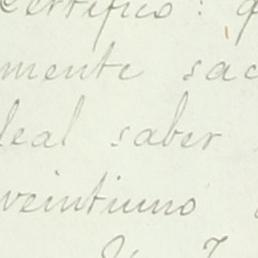 Certifico:
mente sac
leal saber
veintiuno